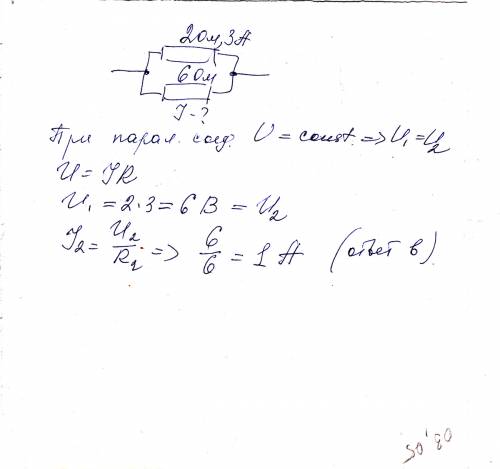 2 Ом, 3 А
6 Ом
I - ?
При парал. соед. U = const. => U₁ = U₂
U = IR
U₁ = 2·3 = 6 В = U₂
I₂ = U₂/R₂ => 6/6 = 1 А (ответ в)
03.05